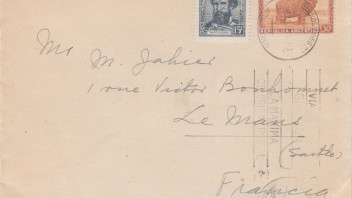 15¢
REPUBLICA ARGENTINA
Mr M. Jahier
1 rue Victor Bonhommet
Le Mans
(Sarthe)
Francia
VIA